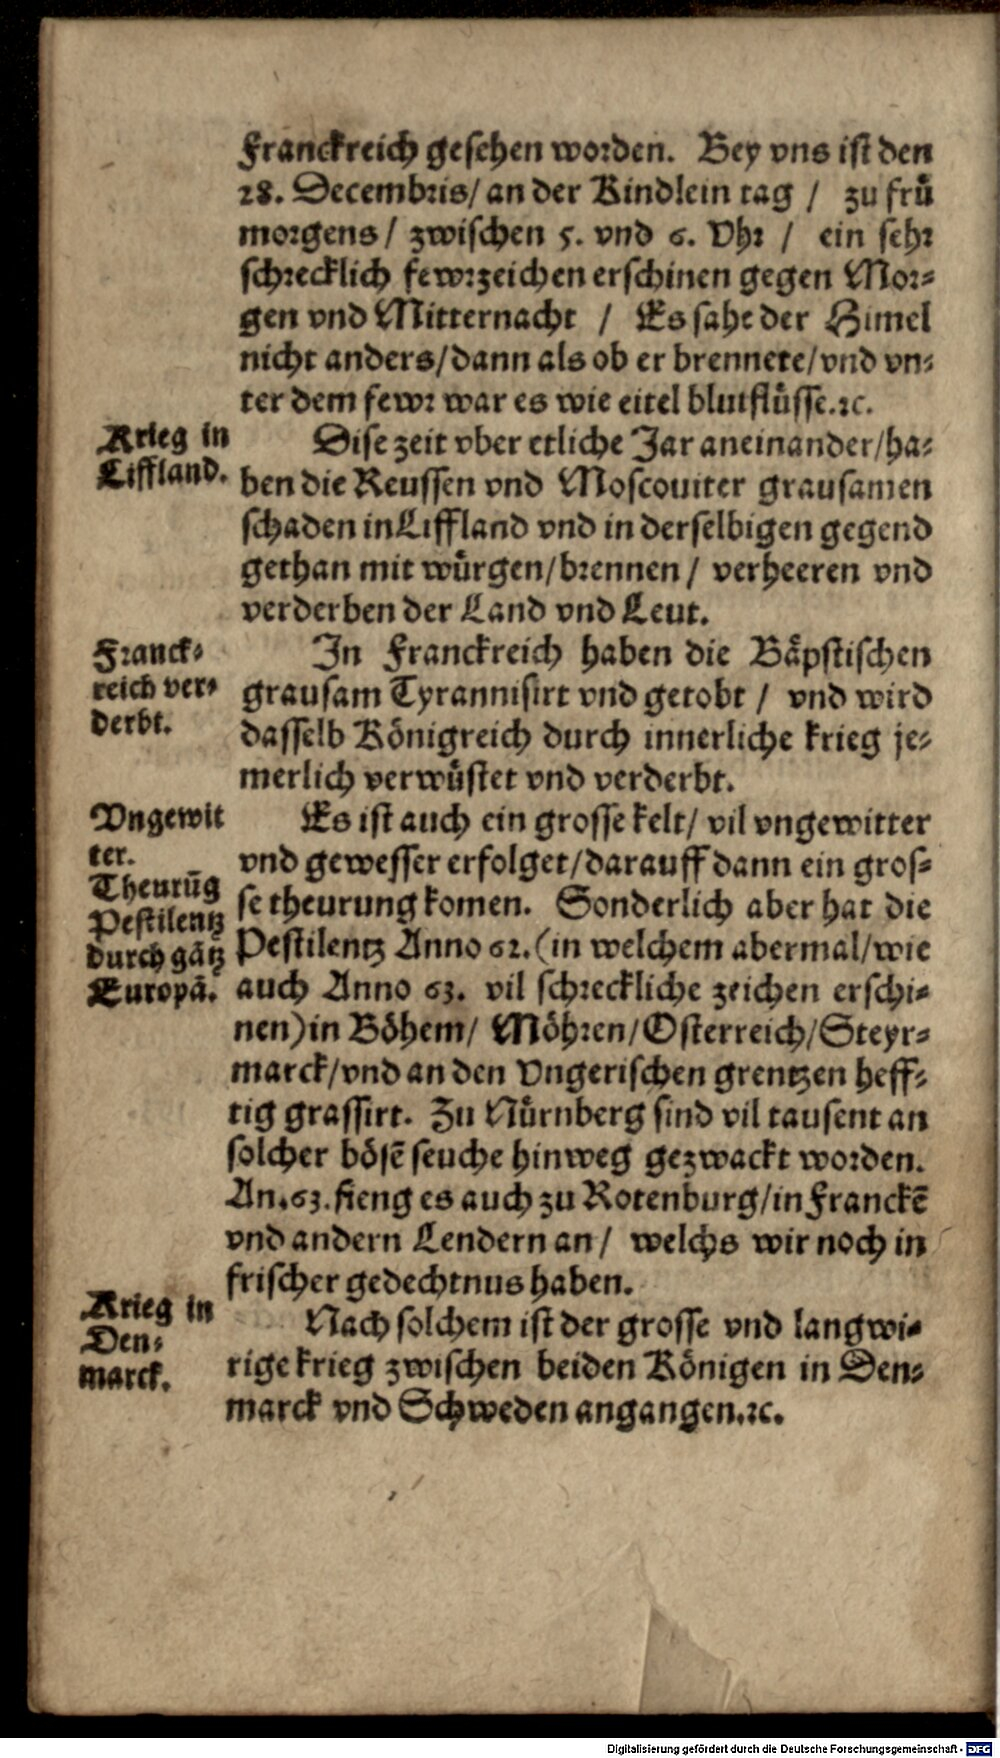 Franckreich gesehen worden. Bey vns ist den
28. Decembris/ an der Kindlein tag / zu frů
morgens / zwischen 5. vnd 6. Vhr / ein sehr
schrecklich fewrzeichen erschinen gegen Mor-
gen vnd Mitternacht / Es sahe der Himel
nicht anders/dann als ob er brennete/vnd vn-
ter dem fewr war es wie eitel blutflůsse.ꝛc.
Krieg in
Liffland.
Dise zeit vber etliche Jar aneinander/ha-
ben die Reussen vnd Moscouiter grausamen
schaden in Liffland vnd in derselbigen gegend
gethan mit wůrgen/brennen / verheeren vnd
verderben der Land vnd Leut.
Franck-
reich ver-
derbt.
In Franckreich haben die Båpstischen
grausam Tyrannisirt vnd getobt / vnd wird
dasselb Kônigreich durch innerliche krieg je-
merlich verwůstet vnd verderbt.
Vngewit
ter.
Theurūg
Pestilentz
durch gātz
Europā.
Es ist auch ein grosse kelt/ vil vngewitter
vnd gewesser erfolget/darauff dann ein gros-
se theurung komen. Sonderlich aber hat die
Pestilentz Anno 62. (in welchem abermal/wie
auch Anno 63. vil schreckliche zeichen erschi-
nen) in Bôhem/ Môhren/Osterreich/Steyr-
marck/vnd an den Vngerischen grentzen heff-
tig grassirt. Zu Nůrnberg sind vil tausent an
solcher bôsē seuche hinweg gezwackt worden.
An.63. fieng es auch zu Rotenburg/in Franckē
vnd andern Lendern an/ welchs wir noch in
frischer gedechtnus haben.
Krieg in
Den-
marck.
Nach solchem ist der grosse vnd langwi-
rige krieg zwischen beiden Kônigen in Den-
marck vnd Schweden angangen.ꝛc.
Digitalisierung gefördert durch die Deutsche Forschungsgemeinschaft - DFG